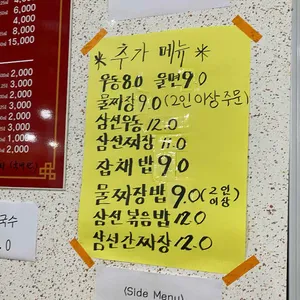 6,000
8,000
15,000
2,000
2,000
2,000
2,000
3,000
3,000
1,000
국수
.0
* 추가 메뉴 *
우동 8.0 울면 9.0
물짜장 9.0 (2인 이상 주문)
삼선우동 12.0
삼선짜장 11.0
잡채밥 9.0
물짜장밥 9.0 (2인 이상)
삼선볶음밥 12.0
삼선간짜장 12.0
(Side Menu)